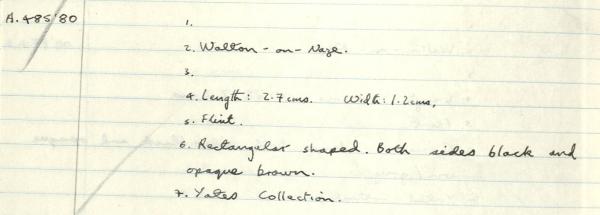 A.485/80
1.
2. Walton-on-Naze.
3.
4. Length: 2.7cms. Width: 1.2cms.
5. Flint.
6. Rectangular shaped. Both sides black and
opaque brown.
7. Yates Collection.